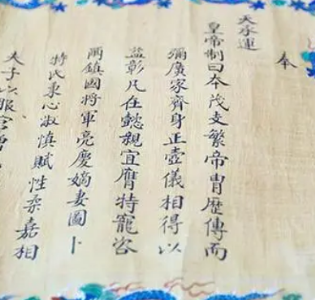 奉
天承運
皇帝制曰本茂支繁帝胄歷傳而
彌廣家齊身正壼儀相得以
益彰凡在懿親宜膺特寵咨
爾鎮國將軍亮慶嫡妻圖卜
持氏秉心淑慎賦性柔嘉相
夫子以服官